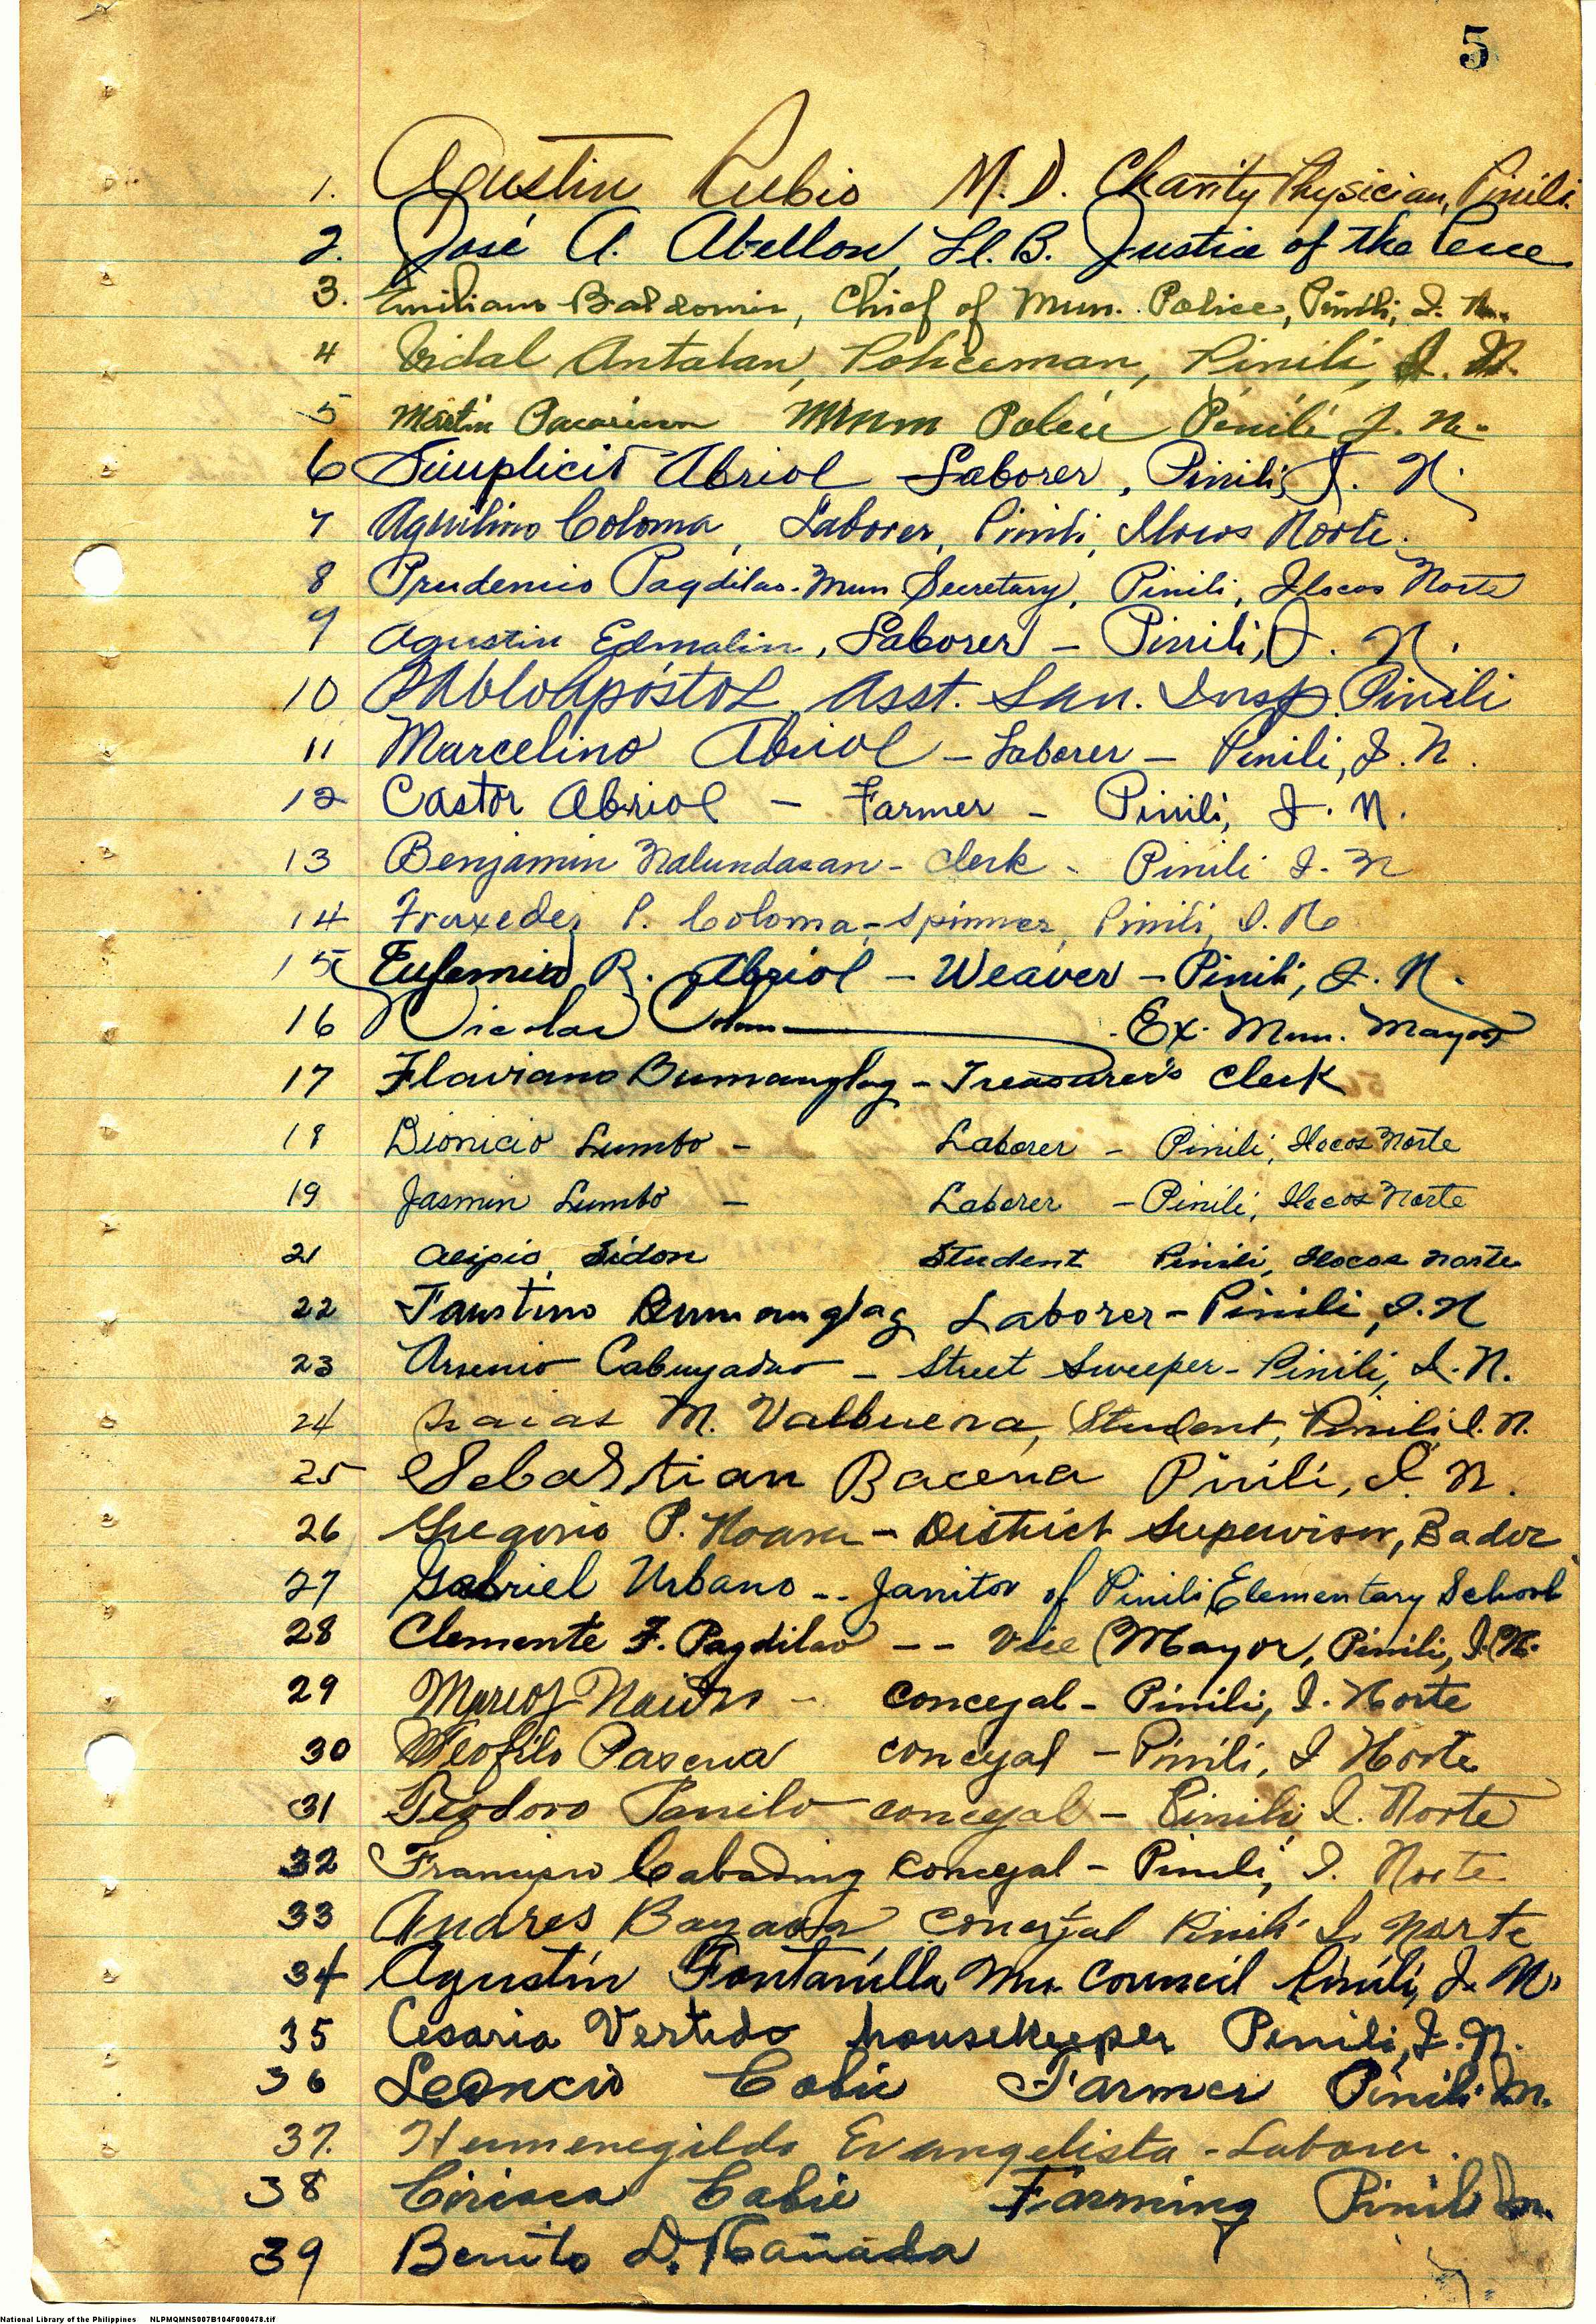 5
1. Agustin Rubio M.D. Charity Physician, Pinili
2. José A. Abellon, Ll. B. Justice of the Peace
3. Emiliano Baldomin, Chief of Mun. Police, Pinili, I. N.
4 Vidal Antalan, Policeman, Pinili, I. N.
5 Martin Police Pinili I. N.
6 Simplicio Abriol Laborer, Pinili, I. N.
7 Aquilino Coloma, Laborer, Pinili, Ilocos Norte.
8 Prudencio Pagdilao - Mun Secretary, Pinili, Ilocos Norte
9 Agustin Edmalin, Laborer - Pinili, I. N.
10 Pablo Apóstol, Asst. San. Insp. Pinili
11 Marcelino Abriol - Laborer - Pinili, I. N.
12 Castor Abriol - Farmer - Pinili, I. N.
13 Benjamin Nalundasan - Clerk - Pinili I. N
14 Praxedes P. Coloma - Spinner, Pinili, I. N
15 Eufemia R. Abriol - Weaver - Pinili, I. N.
16 Nicolas Ex. Mun. Mayor
17 Flaviano Bumanglag - Treasurer's Clerk
18 Dionicio Lumbo - Laborer - Pinili, Ilocos Norte
19 Jasmin Lumbo - Laborer - Pinili, Ilocos Norte
21 Alipio Sidon Student Pinili, Ilocos Norte
22 Faustino Bumanglag Laborer - Pinili, I. N
23 Arsenio Cabuyadao - Street Sweeper - Pinili, I. N.
24 Isaias M. Valbuena, Student, Pinili I. N.
25 Sebastian Bacena Pinili, I. N.
26 Gregorio P. - District Supervisor, Badoc
27 Gabriel Urbano -- Janitor of Pinili Elementary School
28 Clemente F. Pagdilao -- Vice Mayor, Pinili, I. N.
29 Marcos - concejal - Pinili, I. Norte
30 Teofilo Pascua concejal - Pinili, I Norte
31 Teodoro Panilo concejal - Pinili I. Norte
32 Francisco Cabading concejal - Pinili, I. Norte
33 Andres concejal Pinili I. Norte
34 Agustín Fontanilla Mun. Council Pinili, I. N.
35 Cesaria Vertido housekeeper Pinili, I. N.
36 Leoncio Cabie Farmer Pinili I.N.
37. Hermenegildo Evangelista - Laborer.
38 Ciriaca Cabie Farming Pinili I.N.
39 Benito D. Cañada
National Library of the Philippines NLPMQMNS007B104F000478.tif